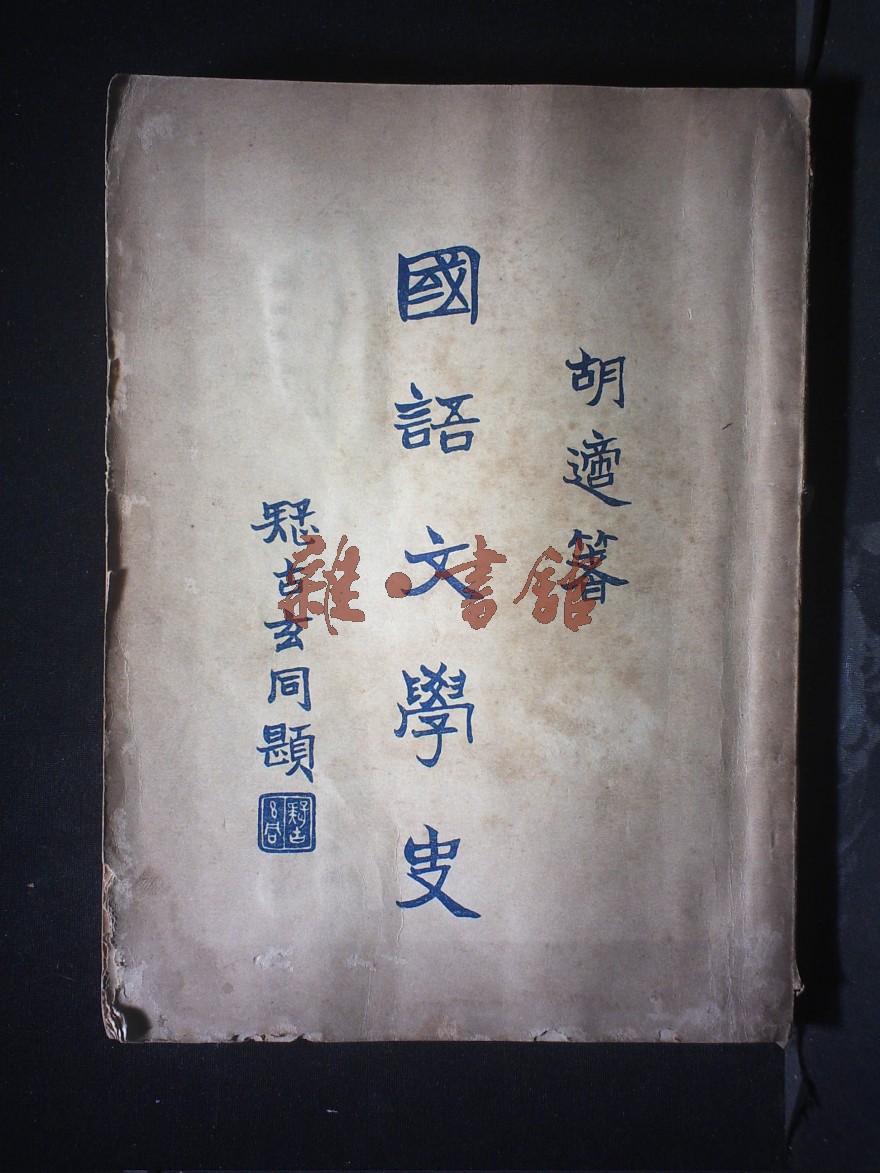 胡適箸
國語文學史
疑古玄同題
雜·書館